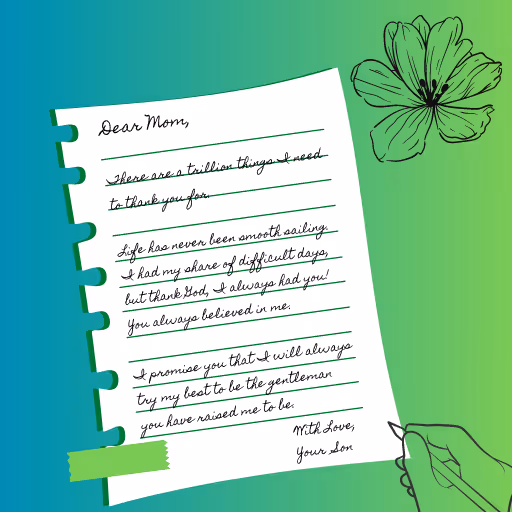 Dear Mom,
There are a trillion things I need
to thank you for.
Life has never been smooth sailing.
I had my share of difficult days,
but thank God, I always had you!
You always believed in me.
I promise you that I will always
try my best to be the gentleman
you have raised me to be.
With Love,
Your Son